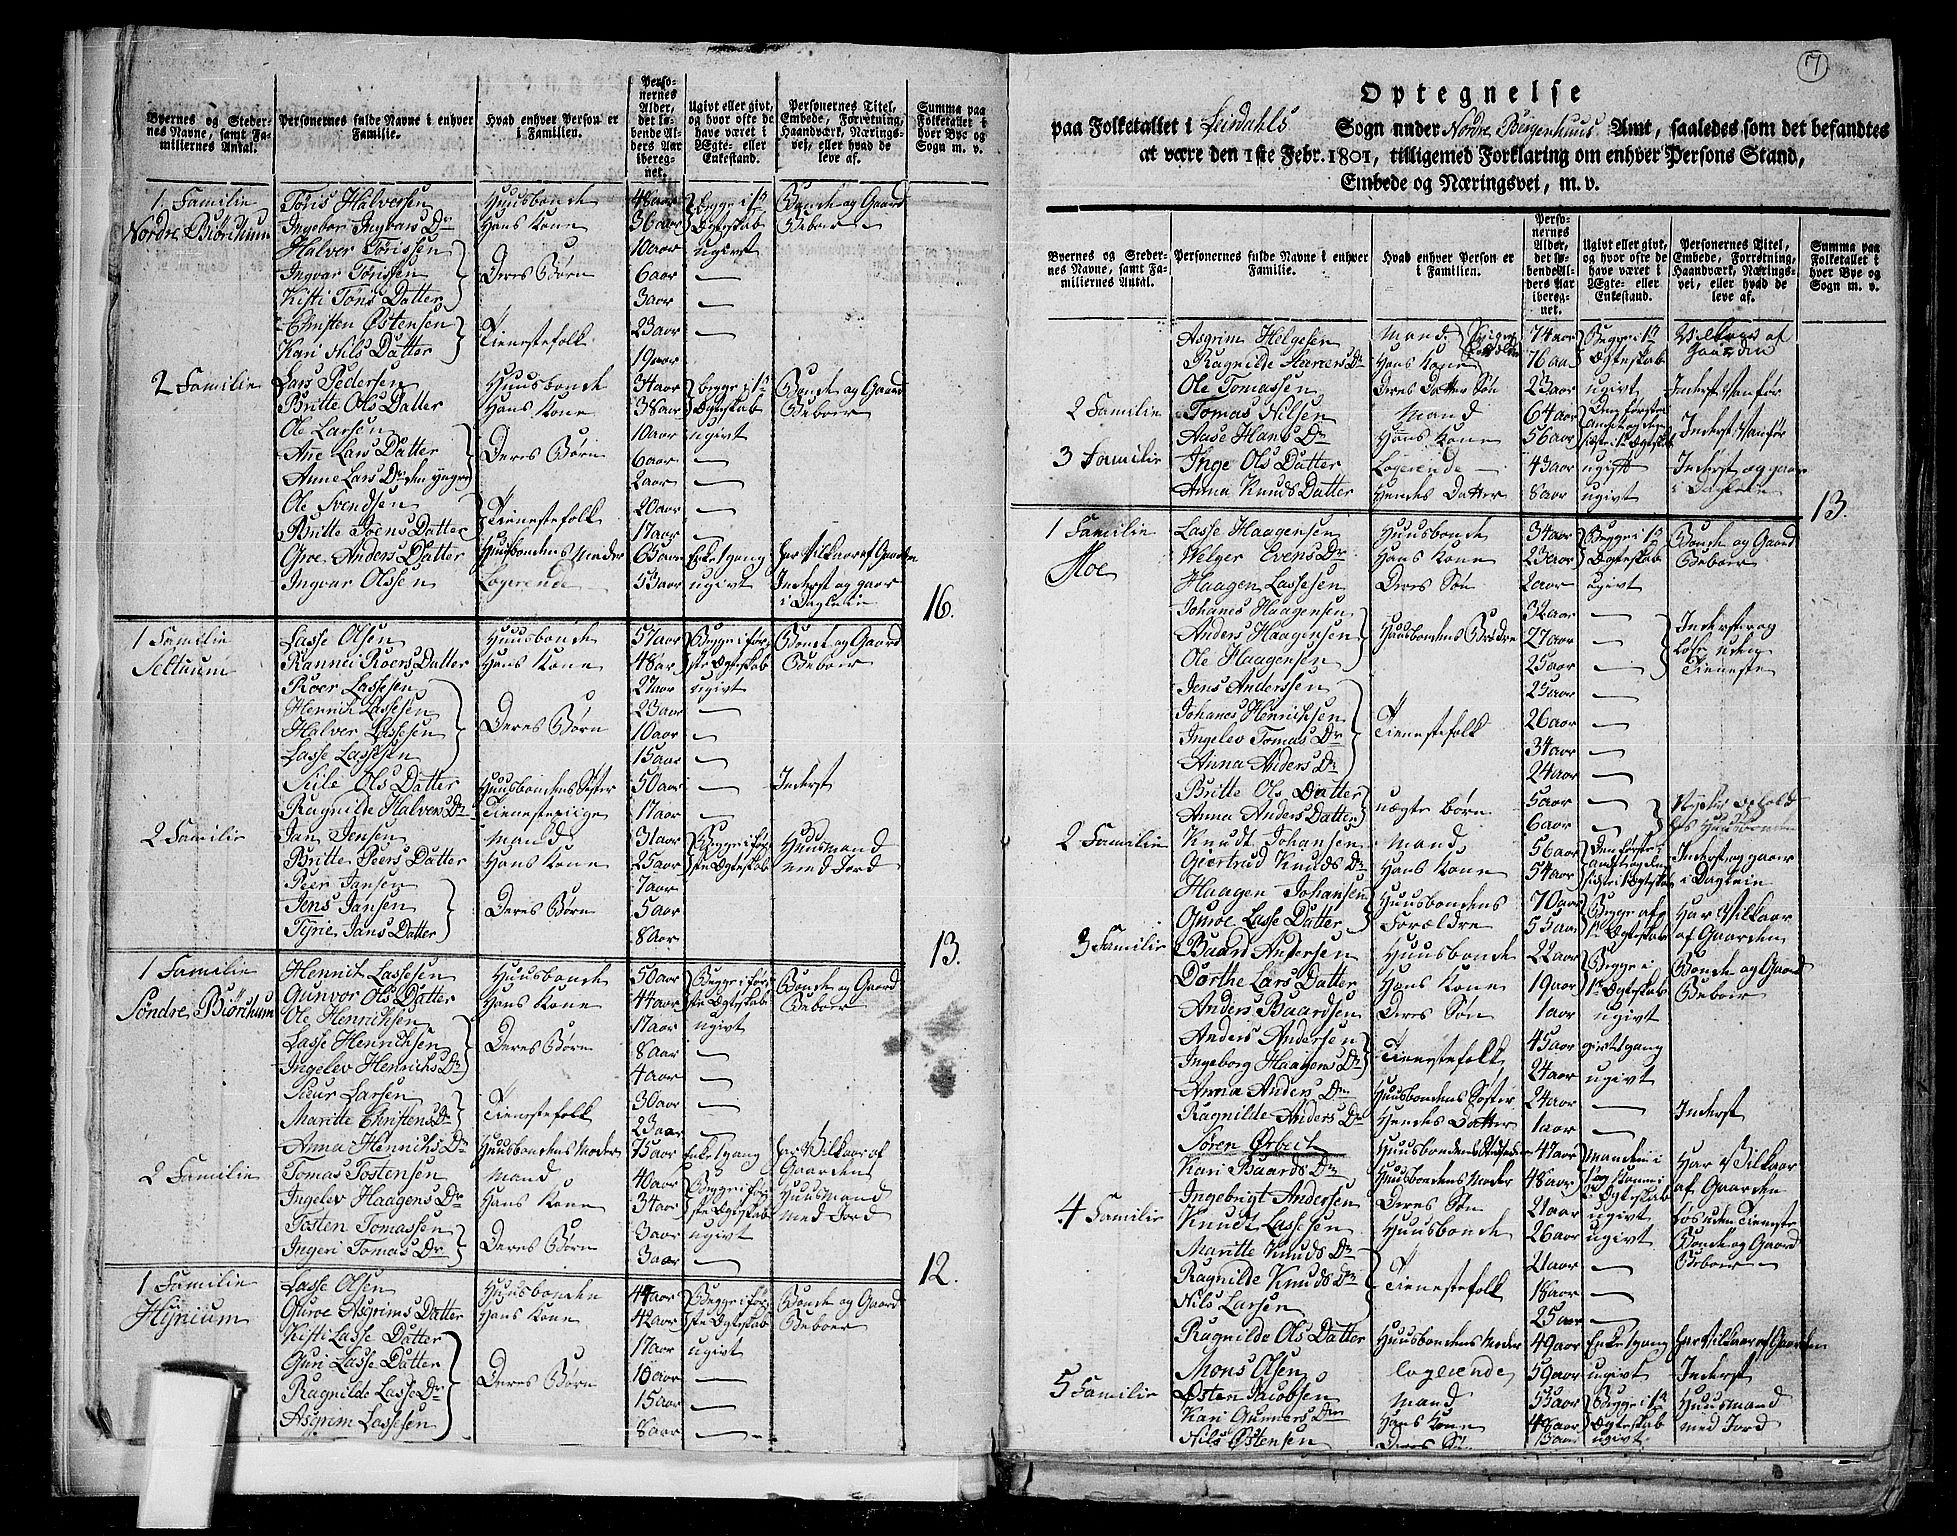 Byernes og Steder-
nes Navne, samt Fa-
miliernes Antal.
Personernes fulde Navne i enhver
Familie.
Hvad enhver Person er
i Familien.
Perso-
nernes
Alder,
det lø-
bende Al-
ders Aar
ibereg-
net.
Ugivt eller givt,
og hvor ofte de
have været i
Ægte- eller
Enkestand.
Personernes Titel,
Embede, Forretning,
Haandværk, Nærings-
vei, eller hvad de
leve af.
Summa paa
Folketallet i
hver Bye og
Sogn m. v.
1. Familie Toris Halversen Huusbonde 48 aar Begge i 1te Bonde og Gaard
Nordre Biörchum Ingebor Ingvars Dr Hans Kone 36 aar Ægteskab Beboere
Halver Torissen 10 aar ugivt
Ingvar Torissen Deres Börn 6 aar —
Kisti Toris Datter 3 aar —
Christen Østensen 23 aar —
Kari Nils Datter Tienestefolk 19 aar
2 Familie Lars Pedersen Huusbonde 34 aar begge i 1te Bonde og Gaard
Britte Ols Datter Hans Kone 38 aar Ægteskab Beboer
Ole Larsen 10 aar ugivt
Ane Lars Datter Deres Börn 6 aar —
Anne Lars Dr den yngre 2 aar —
Ole Svendsen 20 aar —
Britte Joens Datter Tienestefolk 17 aar —
Groe Anders Datter Huusbondens Moder 63 aar Enke 1 gang har Vilkaar af Gaarden
Ingvar Olssen Logerende 53 aar ugivt Inderst og gaar
i Dagleie
16.
1 Familie Lasse Olsen Huusbonde 57 aar Begge i för- Bonde og Gaard
Seltuum Rannei Roers Datter Hans Kone 48 aar ste Ægteskab Beboer
Roer Lassesen 27 aar ugivt
Henrich Lassesen 23 aar —
Halver Lassesen Deres Börn 10 aar —
Lasse Lassesen 15 aar —
Sille Ols Datter Huusbondens Söster 50 aar — Inderst
Ragnilde Halvers Dr Tienestepiige 17 aar —
2 Familie Jan Jensen Mand 31 aar Begge i för- Huusmand
Britte Peers Datter Hans Kone 25 aar ste Ægteskab med Jord
Peer Jansen 7 aar
Jens Jansen Deres Börn 5 aar
Tyrie Jans Datter 8 aar
13.
1 Familie Henrich Lassesen Huusbonde 50 aar Begge i för- Bonde og Gaard
Söndre Biörchum Gunvor Ols Datter Hans Kone 44 aar ste Ægteskab Beboer
Ole Henrichsen 17 aar ugivt
Lasse Henrichsen Deres Börn 8 aar —
Ingelev Henrichs Dr 4 aar —
Siur Larsen 30 aar —
Maritte Christens Dr Tienestefolk 23 aar —
Anna Henrichs Dr Huusbondens Moder 75 aar Enke 1 gang har Vilkaar af
Gaarden
2 Familie Tomas Tostensen Mand 40 aar Begge i för- Huusmand
Ingelev Haagens Dr Hans Kone 34 aar ste Ægteskab med Jord
Tosten Tomassen 3 aar ugivt
Ingeri Tomas Dr Deres Börn 3 aar —
12.
1 Familie Lasse Olsen Huusbonden 44 aar Begge i för- Bonde og Gaard
Guroe Asgrims Datter Hans Kone 42 aar ste Ægteskab Beboer
Kisti Lasse Datter 17 aar ugivt
Guri Lasse Datter 16 aar —
Ragnilde Lasse Dr Deres Börn 15 aar —
Asgrim Lassesen 8 aar —
7
Optegnelse
paa Folketallet i Leirdahls Sogn under Nordre Bergenhuus Amt, saaledes som det befandtes
at være den 1ste Febr. 1801, tilligemed Forklaring om enhver Persons Stand,
Embede og Næringsvei, m. v.
Byernes og Steder-
nes Navne, samt Fa-
miliernes Antal.
Personernes fulde Navne i enhver
Familie.
Hvad enhver Person er
i Familien.
Perso-
nernes
Alder,
det lø-
bende Al-
ders Aar
ibereg-
net.
Ugivt eller givt,
og hvor ofte de
have været i
Ægte- eller
Enkestand.
Personernes Titel,
Embede, Forretning,
Haandværk, Nærings-
vei, eller hvad de
leve af.
Summa paa
Folketallet i
hver Bye og
Sogn m. v.
Asgrim Helgesen Mand 74 aar Begge i 1te Vilkaar af
Ragnilde Hans Kone 76 aar Ægteskab Gaarden
Ole Tomassen Deres Datter Sön 23 aar ugivt Inderst Vanför
2 Familie Tomas Nilsen Mand 64 aar Den förste i
Aase Hans Dr Hans Kone 56 aar Inderst Vanför
3 Familie Inge Ols Datter Logerende 43 aar ugivt Inderst og gaar
Anna Knuds Datter Hendes Datter 8 aar ugivt i Dagleie
13.
1 Familie Lasse Haagensen Huusbonde 34 aar Begge i 1te Bonde og Gaard
Moe Velger Evens Dr Hans Kone 23 aar Ægteskab Beboer
Haagen Lassesen Deres Sön 2 aar ugivt
Johanes Haagensen 32 aar —
Anders Haagensen Huusbondens Brödre 27 aar — Inderster og
Ole Haagensen 25 aar — löse uden
Tieneste
Jens Anderssen 25 aar —
Johanes Henrichsen 26 aar —
Ingelev Tomas Dr Tienestefolk 34 aar —
Anna Anders Dr 24 aar —
Britte Ols Datter 5 aar —
Anna Anders Datter uægte börn 6 aar —
2 Familie Knudt Johansen Mand 56 aar Den förste i Inderst og gaar
Giertrud Knuds Dr Hans Kone 54 aar i Dagleie
Haagen Johansen Huusbondens 70 aar Begge af Har Vilkaar
Guroe Lasse Datter Forældre 55 aar 1te Ægteskab af Gaarden
3 Familie Baard Andersen Huusbonde 22 aar Begge i Bonde og Gaard
Dorthe Lars Datter Hans Kone 19 aar 1te Ægteskab Beboer
Anders Baardsen Deres Sön 1 aar ugivt
Anders Andersen 45 aar givt 1 gang
Ingeborg Haagens Dr Tienestefolk 24 aar ugivt
Anna Anders Dr Huusbondens Söster 24 aar —
Ragnilde Anders Dr Hendes Datter 1 aar — Inderst
Sören Ørbech Huusbondens 47 aar Manden i Har Vilkaar
Kari Baards Dr Huusbondens Moder 48 aar af Gaarden
Ingebrigt Andersen Deres Sön 21 aar ugivt Lös uden Tieneste
4 Familie Knudt Lassesen Huusbonde 26 aar ugivt Bonde og Gaard
Beboer
Maritte Knuds Dr 21 aar —
Ragnilde Knuds Dr Tienestefolk 18 aar —
Nils Larsen 25 aar —
Ragnilde Ols Datter Huusbondens Moder 49 aar Enke 1 gang har Vilkaar af Gaarden
Mons Olsen logerende 59 aar ugivt Inderst
5 Familie Østen Jacobsen Mand 53 aar Begge i 1te Huusmand
Kari Gunners Dr Hans Kone 49 aar Ægteskab med Jord
Nils Østensen Deres 13 aar ugivt